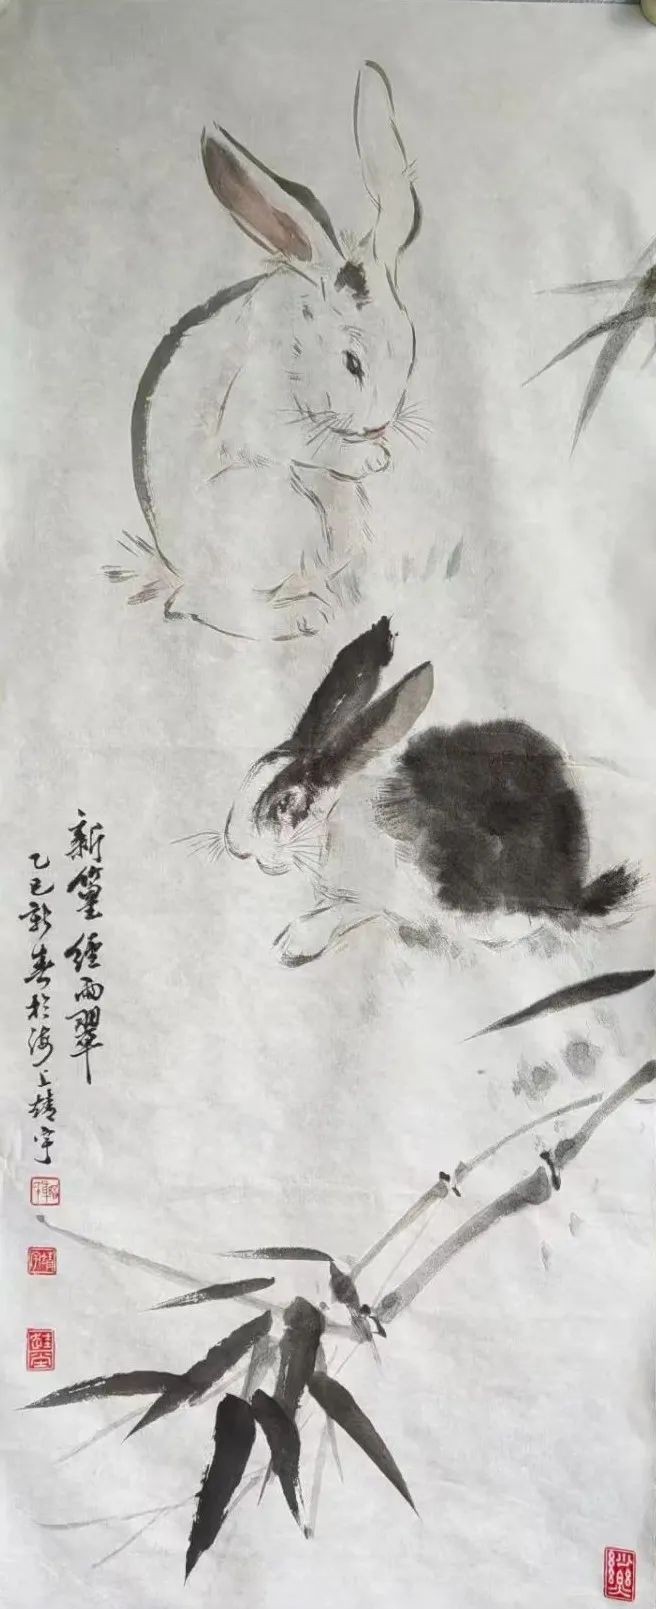 新篁經雨翠
乙巳新春於海上靖宇